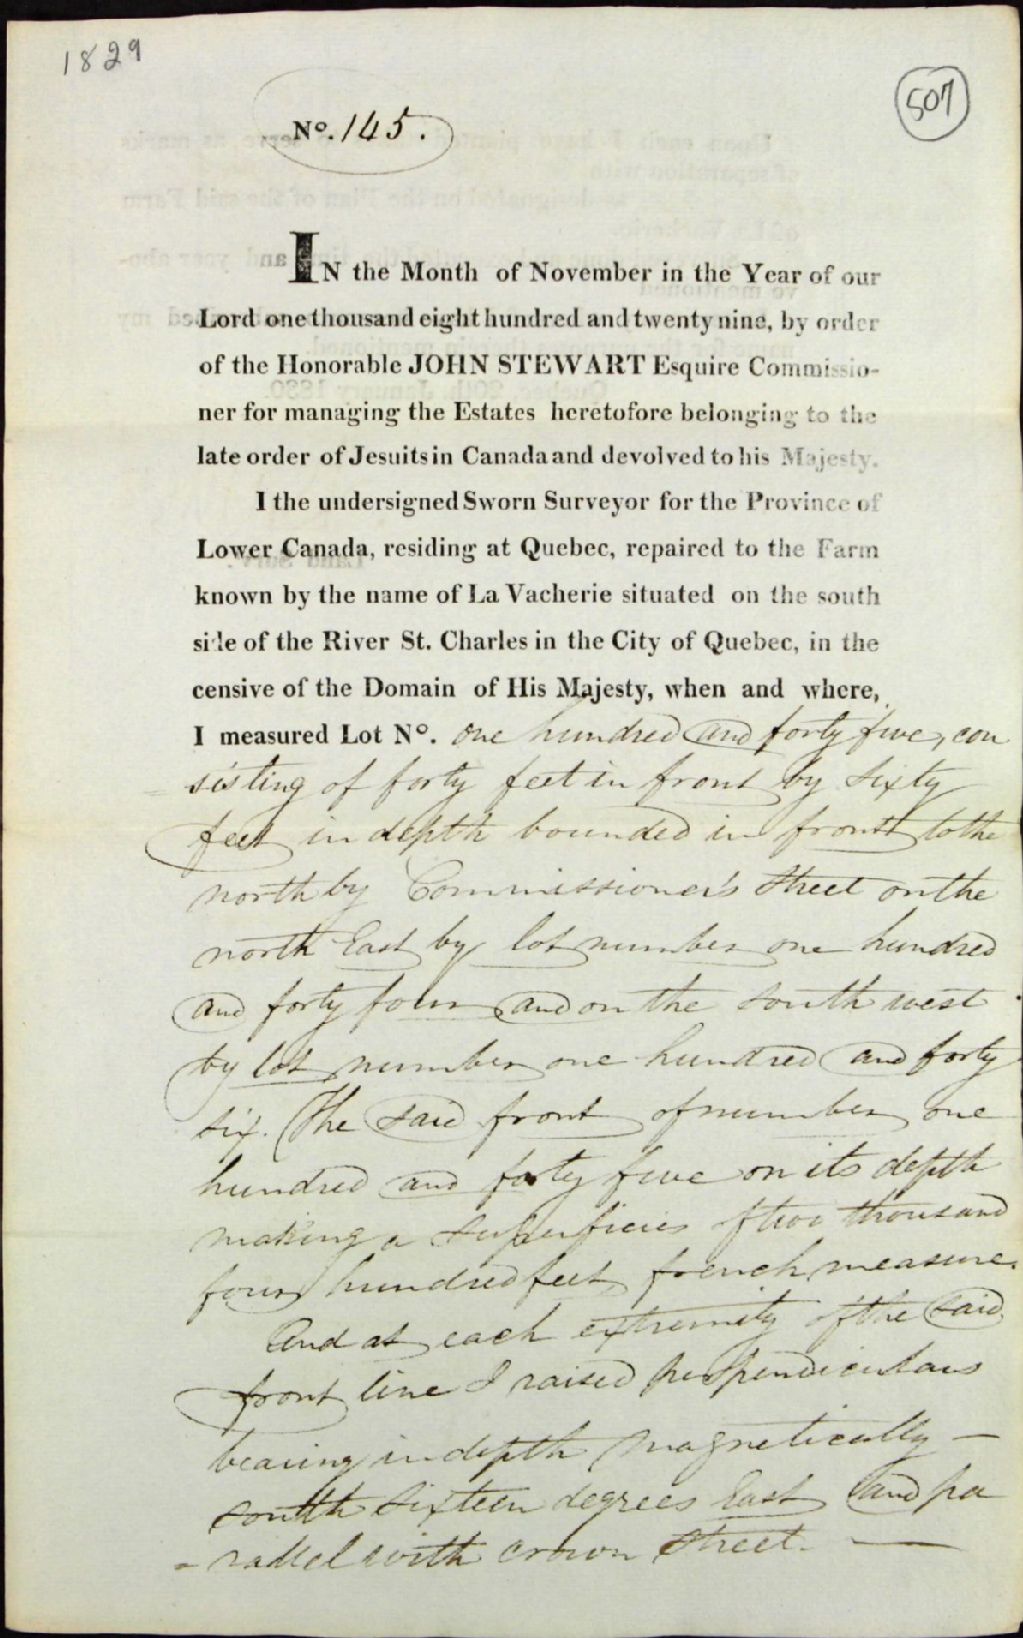 1829
507
No. 145.
IN the Month of November in the Year of our
Lord one thousand eight hundred and twenty nine, by order
of the Honorable JOHN STEWART Esquire Commissio-
ner for managing the Estates heretofore belonging to the
late order of Jesuits in Canada and devolved to his Majesty.
I the undersigned Sworn Surveyor for the Province of
Lower Canada, residing at Quebec, repaired to the Farm
known by the name of La Vacherie situated on the south
side of the River St. Charles in the City of Quebec, in the
censive of the Domain of His Majesty, when and where,
I measured Lot No. one hundred and forty five, con
sisting of forty feet in front by sixty
feet in depth bounded in front to the
north by Commissioner's Street on the
north East by lot number one hundred
and forty four and on the south west
by lot number one hundred and forty
six. The said front of number one
hundred and forty five on its depth
making a superficies of two thousand
four hundred feet french measure.
And at each extremity of the said
front line I raised perpendiculars
bearing in depth magnetically —
south sixteen degrees East and pa
- rallel with crown Street. —